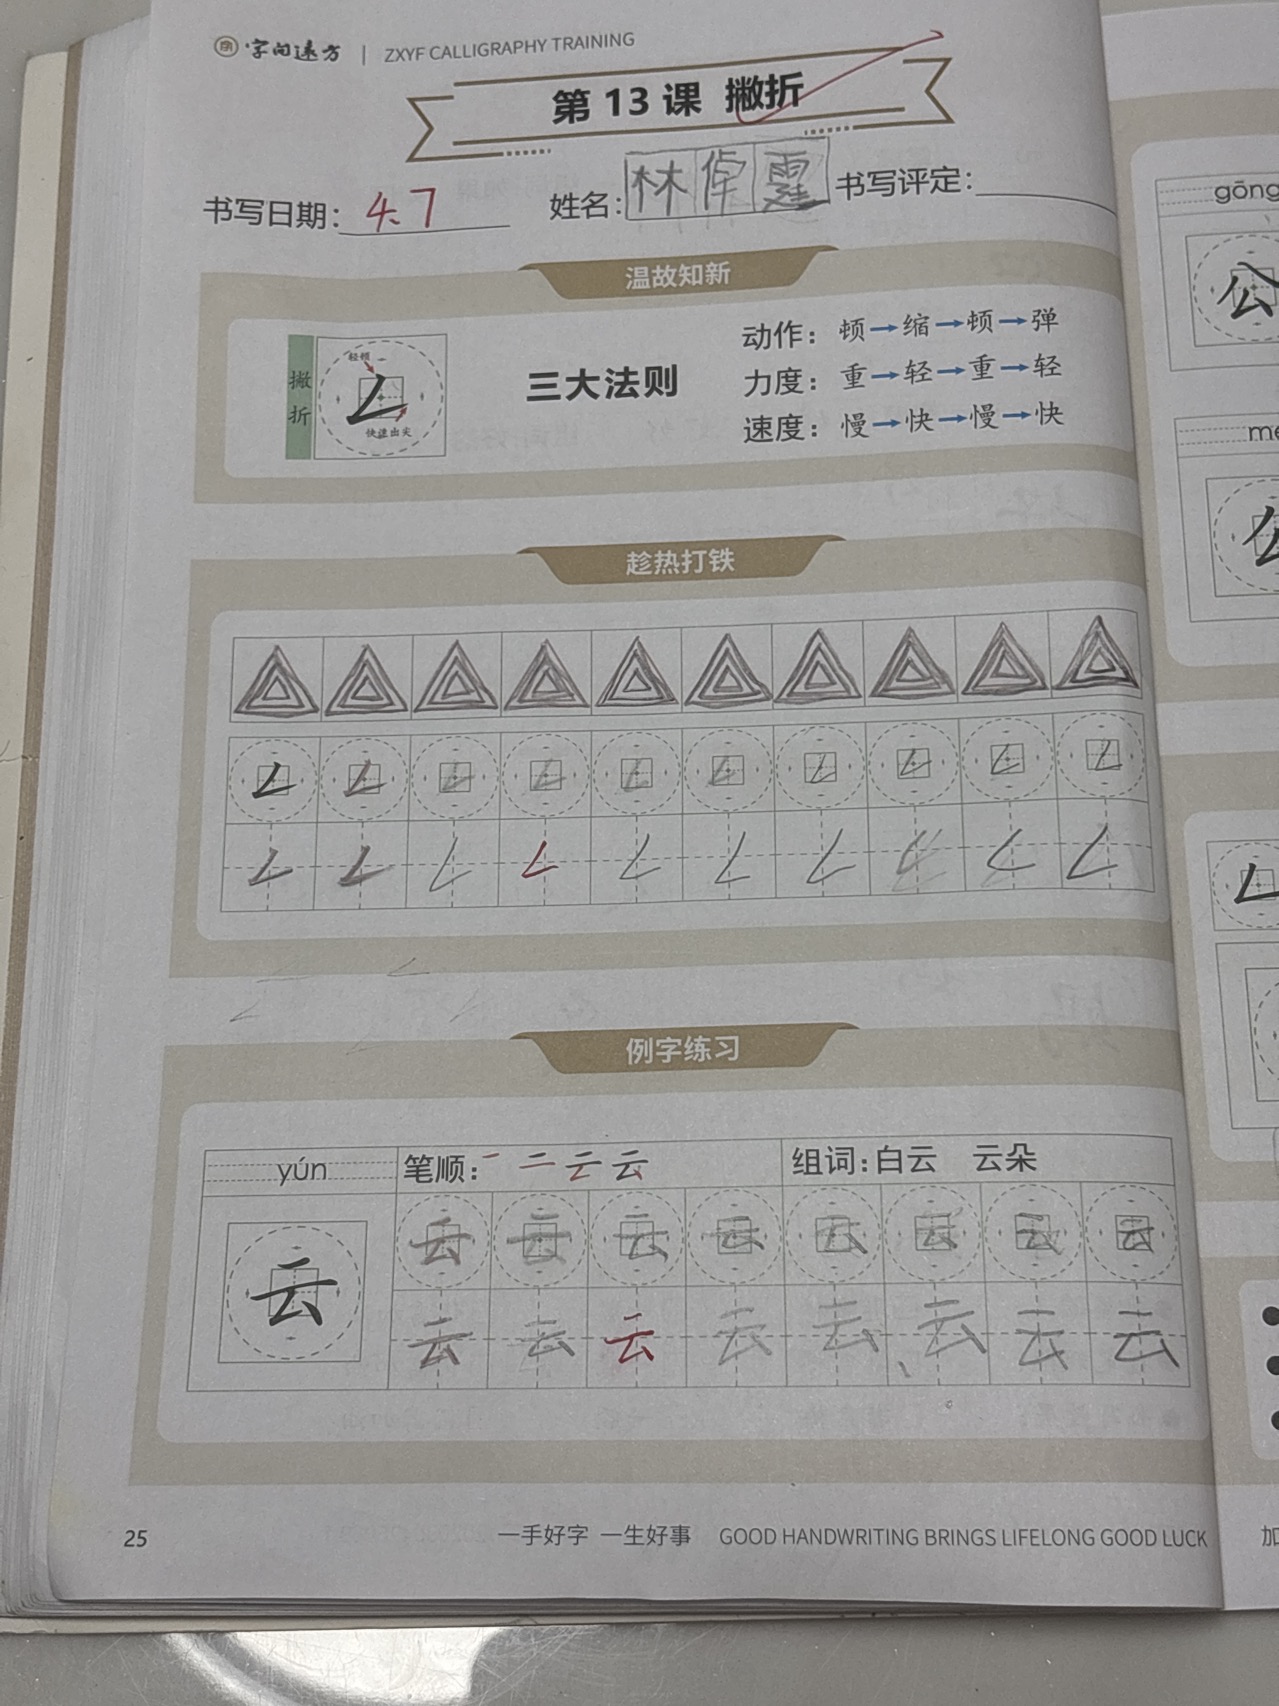 字向远方 | ZXYF CALLIGRAPHY TRAINING
第 13 课 撇折
书写日期: 4.7 姓名: 林倬霆 书写评定:
温故知新
撇折
轻顿
快速出尖
三大法则
动作: 顿→缩→顿→弹
力度: 重→轻→重→轻
速度: 慢→快→慢→快
趁热打铁
例字练习
yún 笔顺: 一 二 云 云 组词: 白云 云朵
云 云 云 云 云 云 云 云 云
云 云 云 云 云 云 云 云
25 一手好字 一生好事 GOOD HANDWRITING BRINGS LIFELONG GOOD LUCK
gōng
公
加